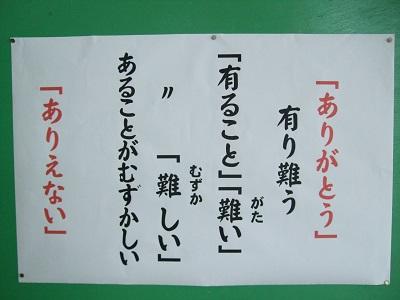 「ありがとう」
有り難う
「有ること」「難い」
がた
〃 「難しい」
むずか
あることがむずかしい
「ありえない」